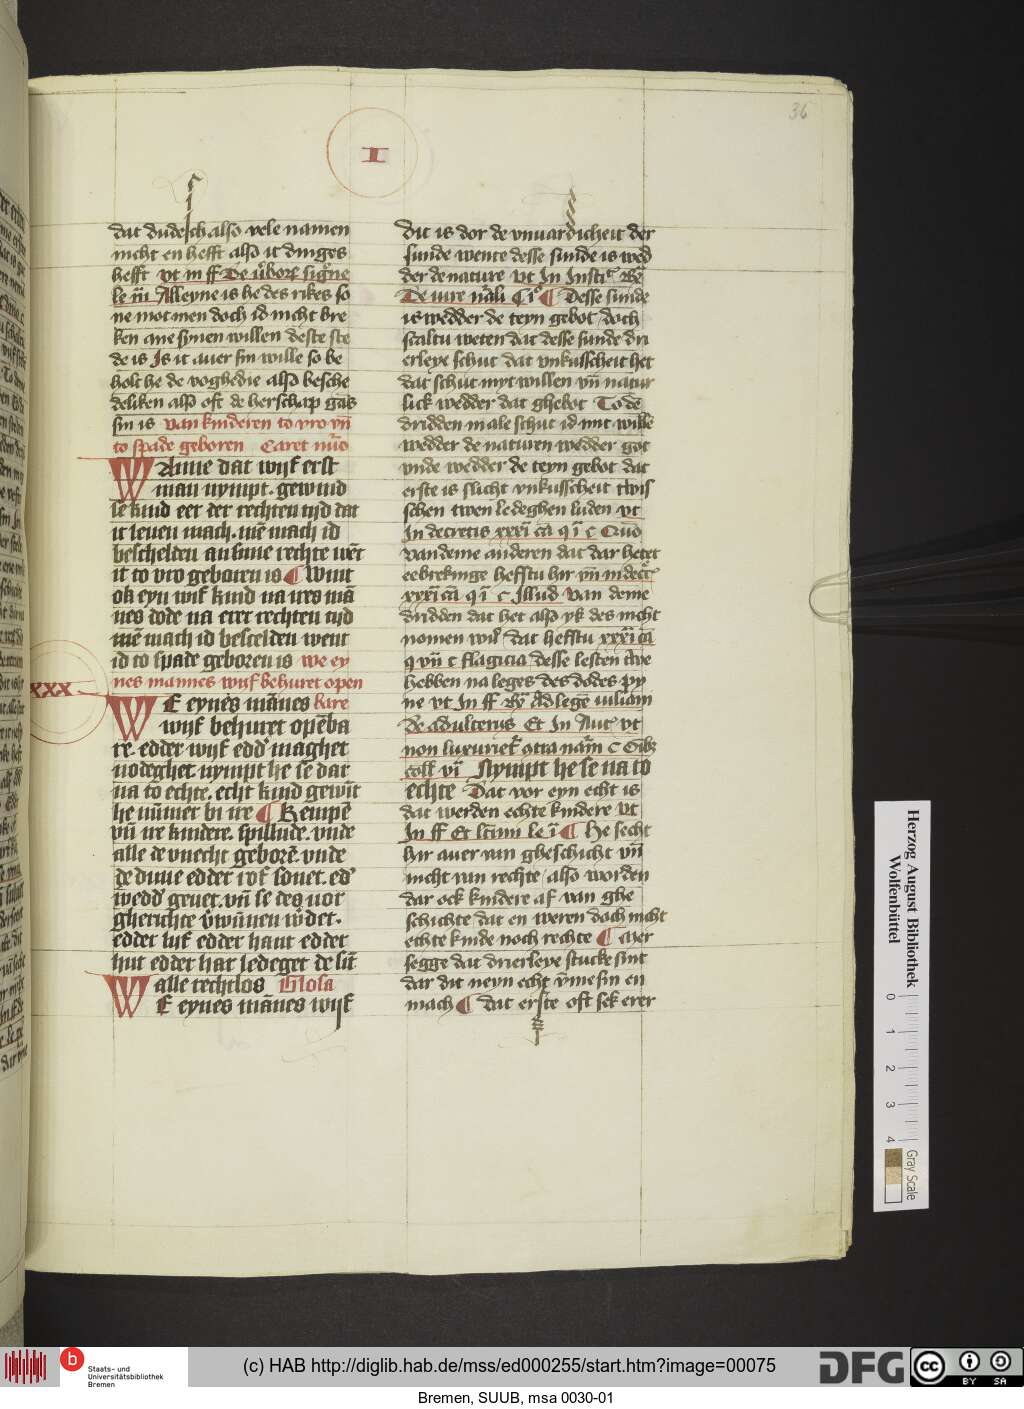 36
I
dat dudesch also vele namen
nicht en hefft also it dinges
hefft vt in ff De v̉bor̄ sigñe
le iii Alleyne is he des rikes so
ne mot men doch id nicht bre
ken ane synen willen deste ste
de is Is it auer sin wille so be
holt he de voghedie also besche
deliken also oft de herschap gās
sin is van kinderen to vro vn̄
to spade geboren Caret
Wanne dat wijf erst
man nympt. gewind
se kind eer der rechten tijd dat
it leuen mach. mē mach id
beschelden an sime rechte wēt
it to vro geboren is ¶ Wint
ok eyn wif kind na ires mā
nes dode na erer rechten tijd
mē mach id bescelden went
id to spade geboren is we ey
nes mannes wijf behuret open
bare
XXX
WE eynes mānes
wijf behuret opēba
re. edder wijf edd' maghet
nodeghet. nympt he se dar
na to echte. echt kind gewīt
he nūmer bi ire ¶ Kempē
vn̄ ire kindere. spillude. vnde
alle de vnecht geborē. vnde
de duue edder rof sonet. ed'
wedd' geuet. vn̄ se des vor
gherichte v̉wūnen w̉det.
edder lijf edder haut edder
hut edder har ledeget de sīt
alle rechtlos Glosa
WE eynes mānes wijf
dit is dor de vnuardicheit der
sunde wente desse sunde is wed
der de nature vt In Insti
De iure ¶ Desse sunde
is wedder de teyn gebot doch
scaltu weten dat desse sunde dri
erleye schut dat vnkusscheit het
dat schut myt willen vn̄ natur
lick wedder dat ghebot To dē
dridden male schut id mit wille
wedder de naturen wedder got
vnde wedder de teyn gebot dat
erste is slicht vnkusscheit twis
schen twen ledeghen luden vt
In decretis xxxi cā q i c
van deme anderen dat dar hetet
eebrekinge hefftu hir vn̄ in
xxxi cā q i c Illud van deme
dridden dat het also yk des nicht
nomen wil dat hefftu xxxi cā
q vii c flagicia desse lesten twe
hebben na leges des dodes py
ne vt In ff Ad legē iuliam
de adulterus Et In Aut vt
non luxuriet
coll vi Nympt he se na to
echte Dat vor eyn echt is
dat werden echte kindere vt
In ff Et le i ¶ He secht
hir auer van gheschicht vn̄
nicht van rechte also worden
dar ock kindere af van ghe
schichte dat en weren doch nicht
echte kinde noch rechte ¶ Mer
segge dat drierleye stucke sint
dar dit neyn echt v̄me sin en
mach ¶ dat erste oft sek erer
Herzog August Bibliothek
Wolfenbüttel
0 1 2 3 4
Gray Scale
Staats- und
Universitätsbibliothek
Bremen
(c) HAB http://diglib.hab.de/mss/ed000255/start.htm?image=00075
DFG
cc BY SA
Bremen, SUUB, msa 0030-01